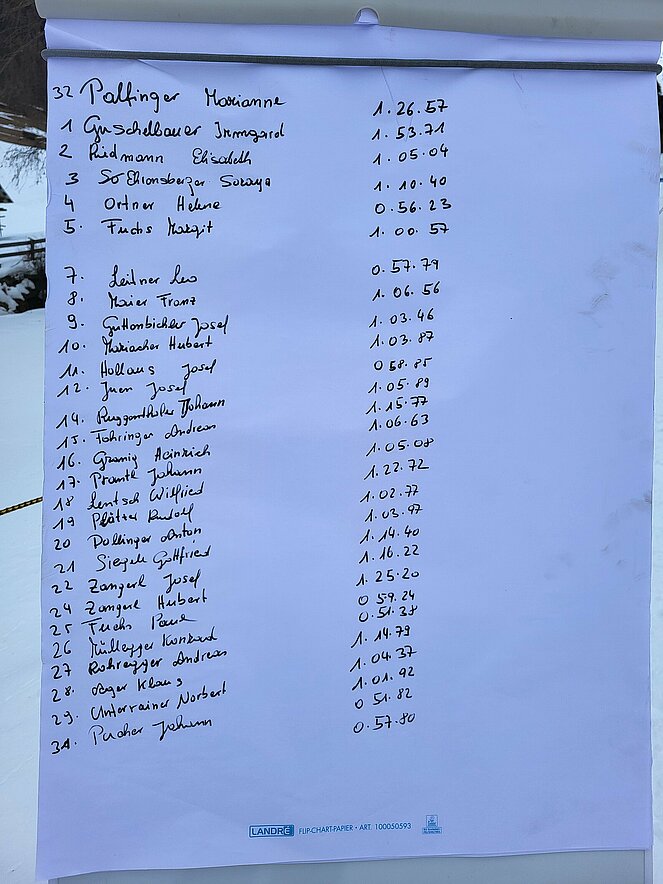 32 Palfinger Marianne 1.26.57
1 Guschelbauer Irmgard 1.53.71
2 Riedmann Elisabeth 1.05.04
3 Soraya 1.10.40
4 Ortner Helene 0.56.23
5. Fuchs Margit 1.00.57
7. Leitner Leo 0.57.79
8. Maier Franz 1.06.56
9. Josef 1.03.46
10. Mariacher Hubert 1.03.87
11. Hollaus Josef 0 58.85
12. Juen Josef 1.05.89
14. Ruggenthaler Johann 1.15.77
15. Fahringer Andreas 1.06.63
16. Granig Heinrich 1.05.08
17. Prantl Johann 1.22.72
18 Lentsch Wilfried 1.02.77
19 Plätzer Rudolf 1.03.97
20 Dollinger Anton 1.14.40
21 Siegele Gottfried 1.16.22
22 Zangerl Josef 1.25.20
24 Zangerl Hubert 0 59.24
25 Fuchs Paul 0.51.38
26 Müllegger Konrad 1.14.79
27 Rohregger Andreas 1.04.37
28. Ager Klaus 1.01.92
29. Unterrainer Norbert 0 51.82
31. Pucher Johann 0.57.80
LANDRÉ FLIP-CHART-PAPIER • ART. 100050593